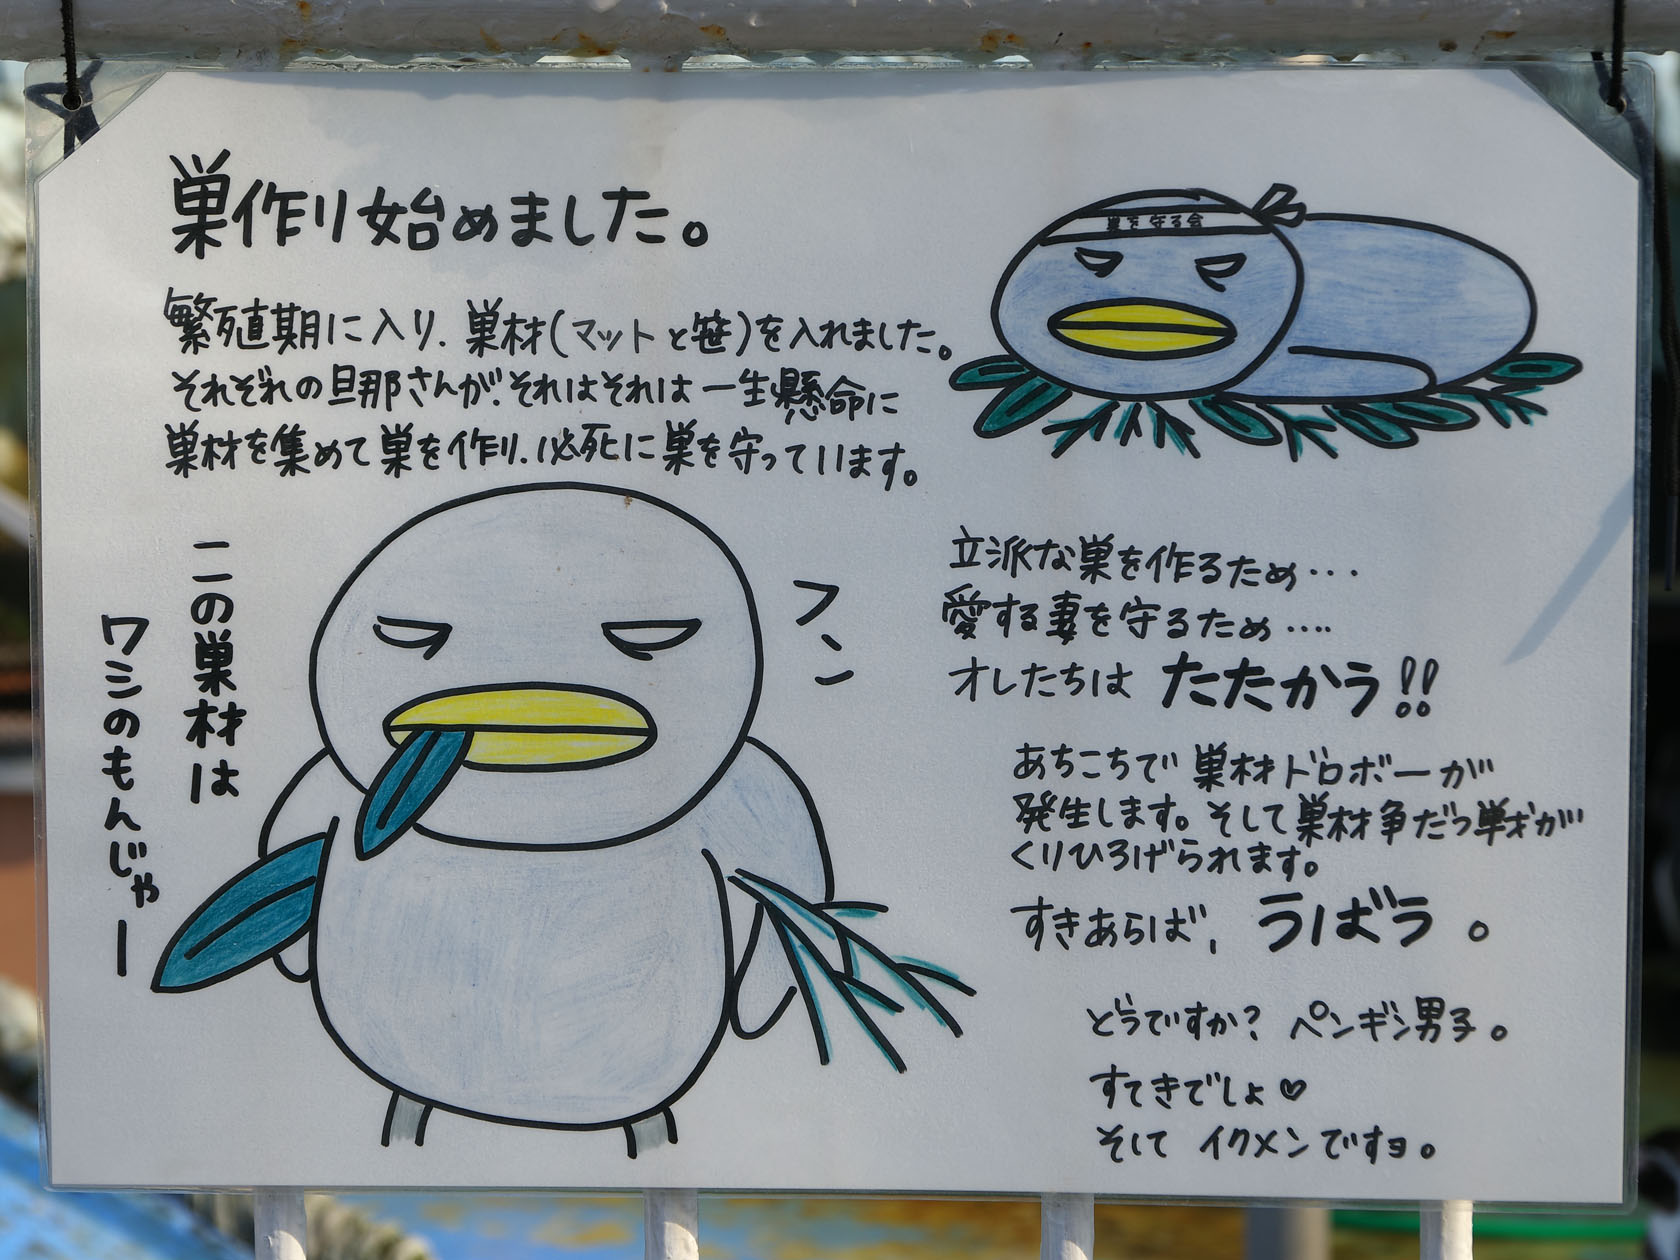 巣作り始めました。
繁殖期に入り、巣材(マットと笹)を入れました。
それぞれの旦那さんが、それはそれは一生懸命に
巣材を集めて巣を作り、必死に巣を守っています。
巣を守る会
この巣材は
ワシのもんじゃー
フン
立派な巣を作るため…
愛する妻を守るため‥‥
オレたちは たたかう!!
あちこちで巣材ドロボーが
発生します。そして巣材争だつ戦が
くりひろげられます。
すきあらば、うばう。
どうですか? ペンギン男子。
すてきでしょ♡
そして イクメンですョ。